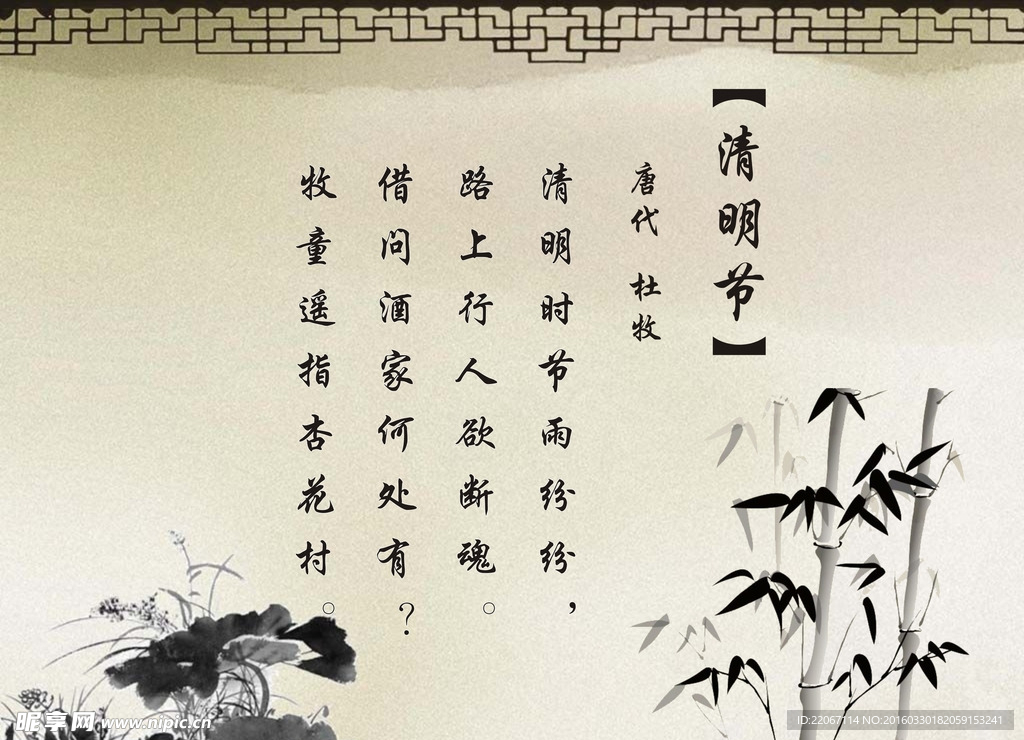 【清明节】
唐代 杜牧
清明时节雨纷纷，
路上行人欲断魂。
借问酒家何处有？
牧童遥指杏花村。
昵享网 www.nipic.cn
ID:22067114 NO:20160330182059153241